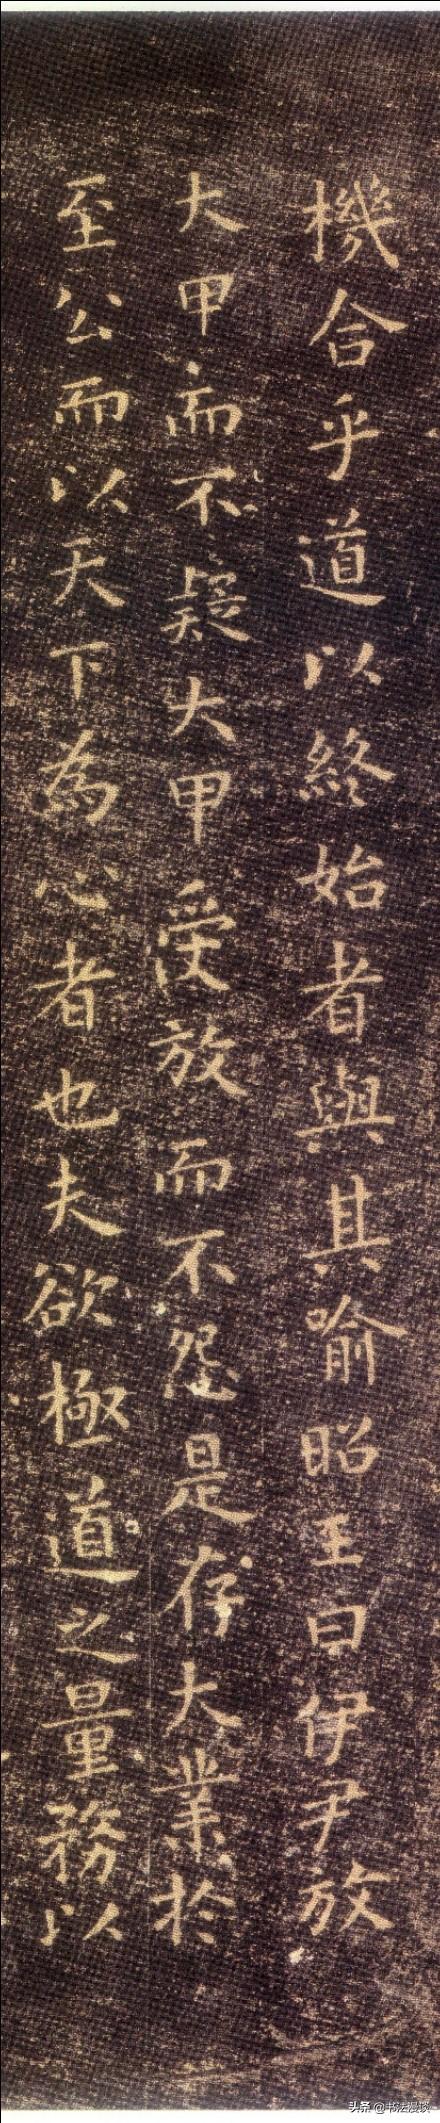 機合乎道以終始者與其喻昭王曰伊尹放
大甲而不疑大甲受放而不怨是存大業於
至公而以天下為心者也夫欲極道之量務以
头条 @书法漫谈